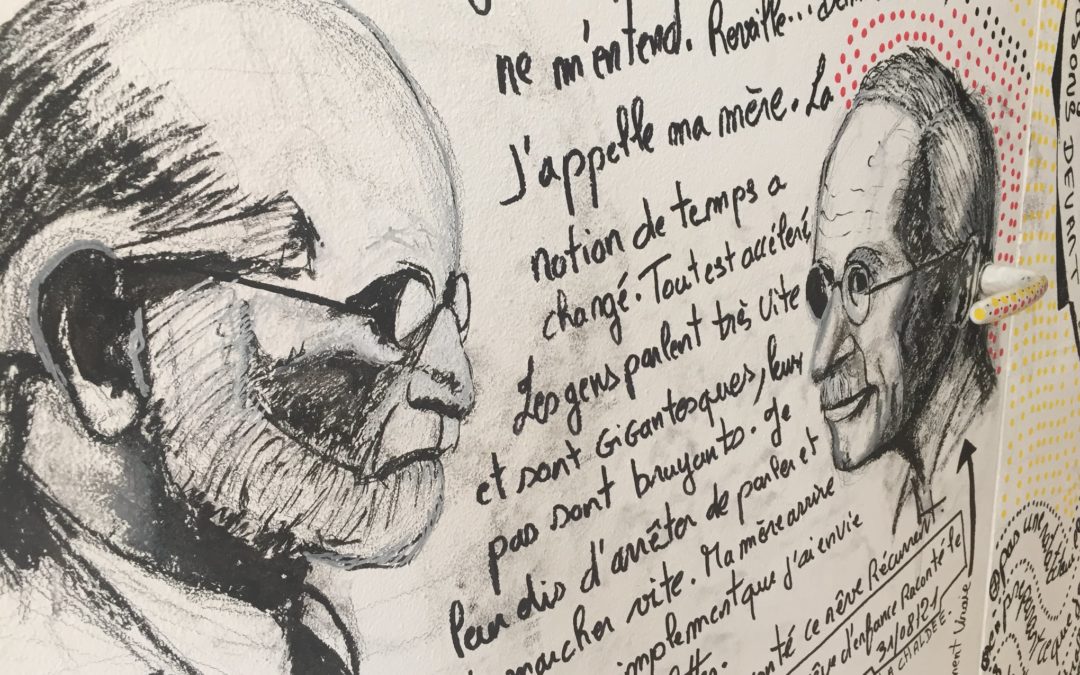 ne m'entend. Réveille...
J'appelle ma mère. La
notion de temps a
changé. Tout est accéléré
Les gens parlent très vite
et sont Gigantesques, leurs
pas sont bruyants. Je
leur dis d'arrêter de parler et
marcher vite. Ma mère arrive
implement que j'ai envie
nté ce rêve Récurrent.
rêve d'enfance Raconté le
31/08/21
LA CHALDÉE.
SSONG DEVANT
@pas une